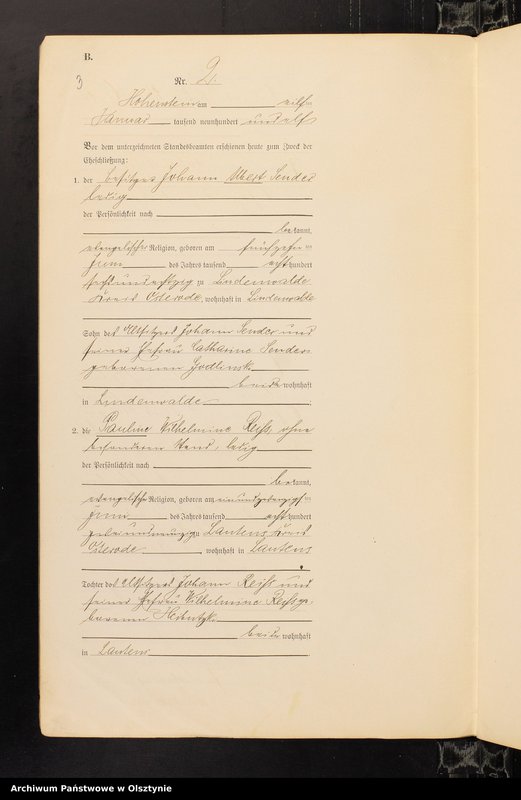 B.
3
Nr. 2.
Hohenstein am elften
Januar tausend neunhundert und elf
Vor dem unterzeichneten Standesbeamten erschienen heute zum Zweck der
Eheschließung:
1. der Besitzer Johann Albert Sender
ledig
der Persönlichkeit nach
bekannt,
evangelischer Religion, geboren am fünfzehnten
Juni des Jahres tausend acht hundert
sechsundachtzig zu Lindenwalde
Kreis Osterode, wohnhaft in Lindenwalde
Sohn des Altsitzers Johann Sender und
seiner Ehefrau Catharine Sender
geborenen
beide wohnhaft
in Lindenwalde
2. die Pauline Wilhelmine Reiss, ohne
besonderen Stand, ledig
der Persönlichkeit nach
bekannt,
evangelischer Religion, geboren am einundzwanzigsten
Juni des Jahres tausend acht hundert
zu Lautens Kreis
Osterode, wohnhaft in Lautens
Tochter des Altsitzers Johann Reiss und
seiner Ehefrau Wilhelmine Reiss ge-
borenen
beide wohnhaft
in Lautens
Archiwum Państwowe w Olsztynie